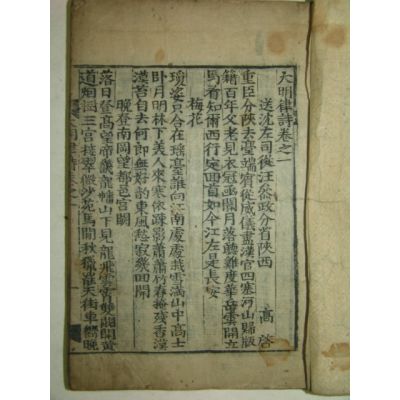 大明律詩卷之一
送沈左司從汪叅政分省陝西 高啓
重臣分陝去臺端賓從威儀盡漢官四塞河山歸版
籍百年父老見衣冠函關月落聽雞度華岳雲開立
馬看知爾西行定回首如今江左是長安
梅花
瓊姿只合在瑤臺誰向江南處處栽雪滿山中高士
卧月明林下美人來寒依疎影蕭蕭竹春掩殘香漠
漠苔自去何郎無好韵東風愁寂幾回開
晚登南岡望都邑宮闕
落日登高望帝畿龍蟠山下見龍飛雲霄雙闕開黃
道烟三宮接翠微沙苑馬閑秋獵罷天街車晚